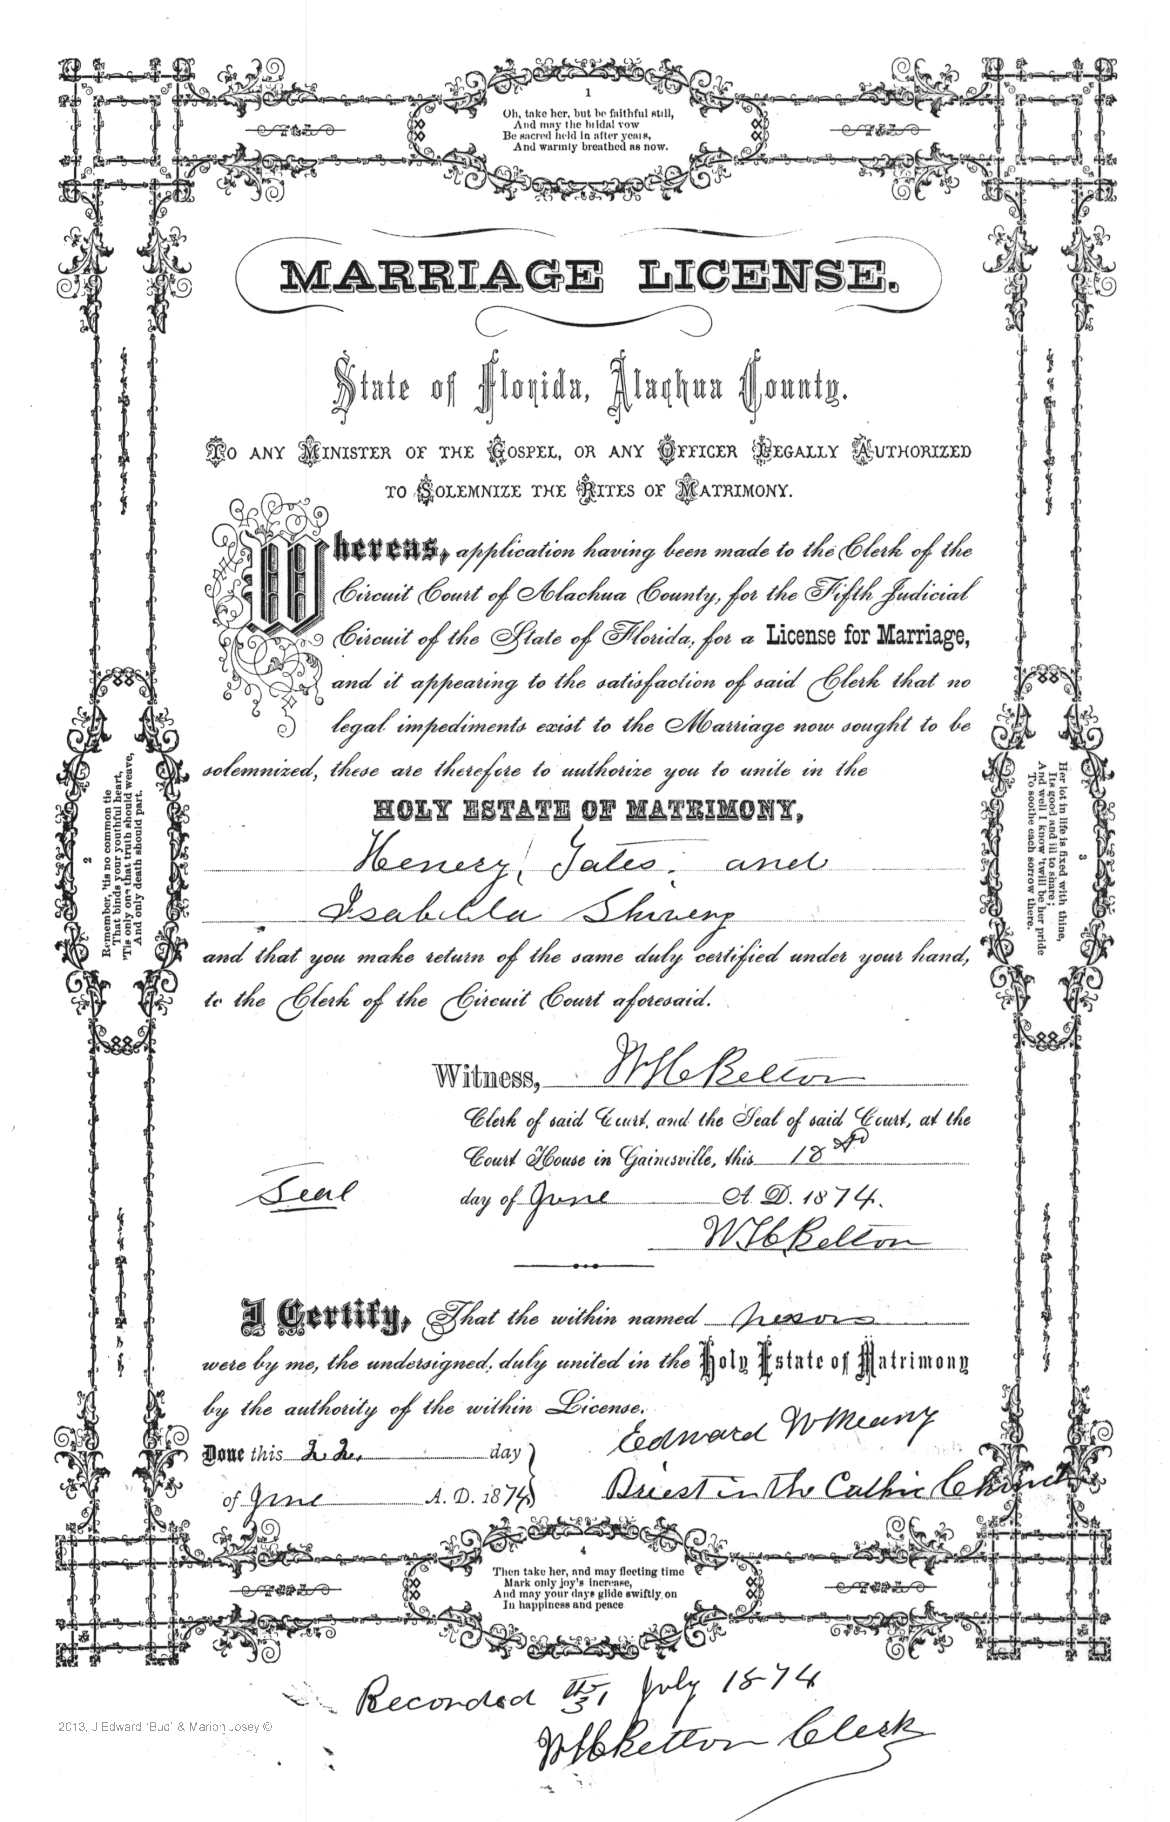 1
Oh, take her, but be faithful still,
And may the bridal vow
Be sacred held in after years,
And warmly breathed as now.
MARRIAGE LICENSE.
State of Florida, Alachua County.
TO ANY MINISTER OF THE GOSPEL, OR ANY OFFICER LEGALLY AUTHORIZED
TO SOLEMNIZE THE RITES OF MATRIMONY.
Whereas, application having been made to the Clerk of the
Circuit Court of Alachua County, for the Fifth Judicial
Circuit of the State of Florida, for a License for Marriage,
and it appearing to the satisfaction of said Clerk that no
legal impediments exist to the Marriage now sought to be
solemnized, these are therefore to authorize you to unite in the
HOLY ESTATE OF MATRIMONY,
Henery Yates. and
Isabella Shivery
and that you make return of the same duly certified under your hand,
to the Clerk of the Circuit Court aforesaid.
Witness, W H C Belton
Clerk of said Court, and the Seal of said Court, at the
Court House in Gainesville, this 18
Seal
day of June A. D. 1874.
W H C Belton
I Certify, That the within named
were by me, the undersigned, duly united in the Holy Estate of Matrimony
by the authority of the within License.
Edward W Meany
Done this 22. day
Priest in the Cathic Church
of June A. D. 1874
2
Remember, 'tis no common tie
That binds your youthful heart,
'Tis only one that truth should weave,
And only death should part.
3
Her lot in life is fixed with thine,
Its good and ill to share;
And well I know 'twill be her pride
To soothe each sorrow there.
4
Then take her, and may fleeting time
Mark only joy's increase,
And may your days glide swiftly on
In happiness and peace
Recorded July 1874
W H C Belton Clerk
2013, J Edward "Bud" & Marion Josey ©